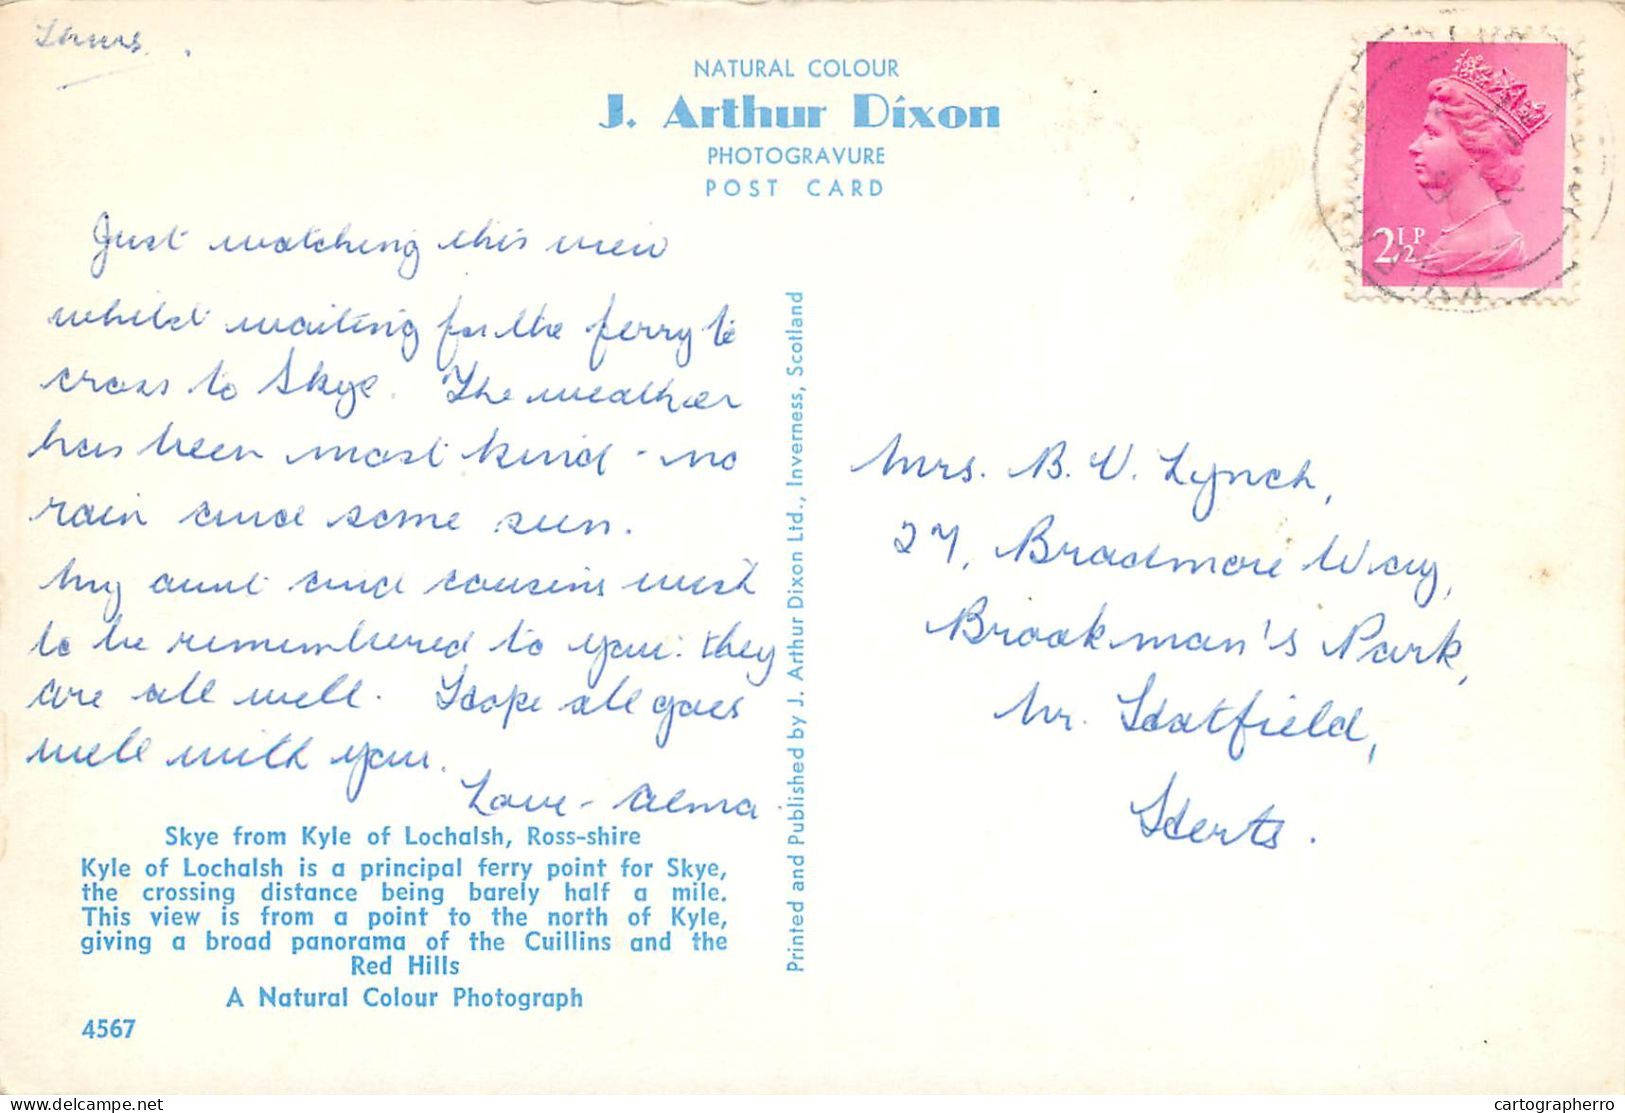 Thurs.
NATURAL COLOUR
J. Arthur Dixon
PHOTOGRAVURE
POST CARD
2½P
Just watching this view
whilst waiting for the ferry to
cross to Skye. The weather
has been most kind - no
rain and some sun.
My aunt and cousins wish
to be remembered to you: they
are all well. Hope all goes
well with you.
Love - Alma.
Skye from Kyle of Lochalsh, Ross-shire
Kyle of Lochalsh is a principal ferry point for Skye,
the crossing distance being barely half a mile.
This view is from a point to the north of Kyle,
giving a broad panorama of the Cuillins and the
Red Hills
A Natural Colour Photograph
4567
Printed and Published by J. Arthur Dixon Ltd., Inverness, Scotland
Mrs. B. V. Lynch,
27, Bradmore Way,
Brookman's Park,
Nr. Hatfield,
Herts.
www.delcampe.net
cartographerro